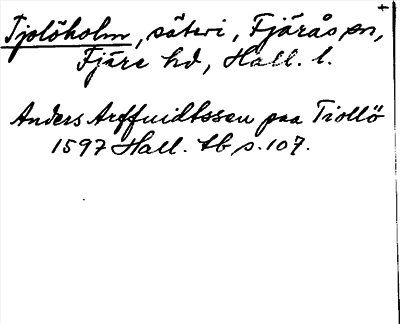 Tjolöholm, säteri, Fjärås sn,
Fjäre hd, Hall. l.
Anders Arffuidtssen paa Tiollö
1597 Hall. tb s. 107.